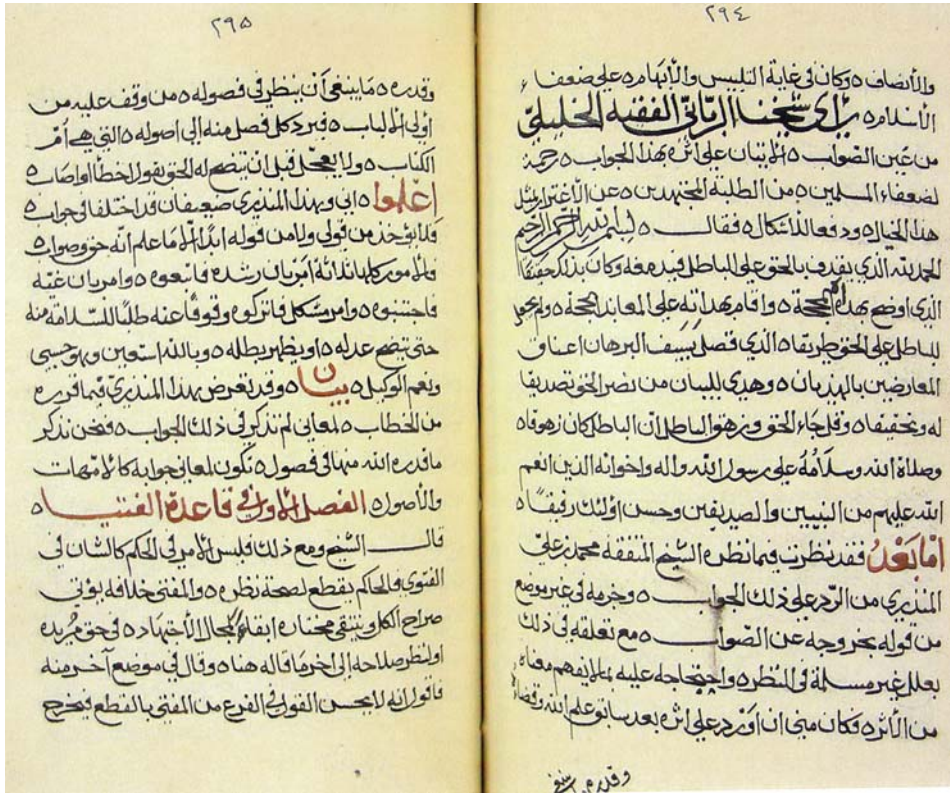 ٢٩٤
والأنصاف ٥ وكان في غاية التلبيس والأبهام ٥ على ضعفاء
الأسلام ٥ رأى شيخنا الرباني الفقيه الخليلي
من عين الصواب ٥ الإتيان على اثره بهذا الجواب ٥ رحمة
لضعفاء المسلمين ٥ من الطلبة المجتهدين ٥ عن الأغترار بمثل
هذا الخيال ٥ ودفعا للاشكال ٥ فقال ٥ بسم الله الرحمن الرحيم
الحمد لله الذي يقذف بالحق على الباطل فيدمغه وكان بذلك حقيقًا
الذي اوضح بهداه المحجة ٥ واقام بهداته على المعاند الحجة ٥ ولم يجعل
للباطل على الحق طريقا ٥ الذي فصل بسيف البرهان اعناق
المعارضين بالهذيان ٥ وهدي للبيان من نصر الحق تصديقا
له وتحقيقا ٥ وقل جاء الحق وزهق الباطل ان الباطل كان زهوقا ٥
وصلاة الله وسلامُهُ على رسول الله واله واخوانه الذين انعم
الله عليهم من النبيين والصديقين وحسن اولئك رفيقًا ٥
امّا بَعْدُ فقد نظرت فيما نظره الشيخ المتفقه محمد بن علي
المنذري من الرد على ذلك الجواب ٥ وخرمه في غير موضع
من قوله بخروجه عن الصواب ٥ مع تعلقه في ذلك
بعلل غير مسلمة في النظر ٥ واحتجاجه عليه بما لا يفهم معناه
من الأثر ٥ فكان مني ان اورد على اثره بعد سابق علم الله وقضاه
وقدره ما ينبغي
٢٩٥
وقدره ٥ مَا ينبغي أَنْ ينظر في فصوله ٥ من وقف عليه من
أولي الألباب ٥ فيرد كل فصل منه إلى اصوله ٥ التي هي أمّ
الكتاب ٥ ولا يعجل قبل ان يتضح له الحق بقول اخطا او اصاب ٥
اعلموا ٥ اني وهذا المنذري ضعيفان قد اختلفا في جواب ٥
فلا يؤخذ من قولي ولا من قوله ابدًا الا ما علم انّه حق وصواب ٥
فالأمور كلها ثلاثة امر بان رشده فاتبعوه ٥ وامر بان غيّه
فاجتنبوه ٥ وامر مشكل فاتركوه وقوفًا عنه طلبًا للسّلامة منه
حتى يتضح عدله ٥ او يظهر بطله ٥ وبالله استعين وهو حسبي
ونعم الوكيل ٥ بيان ٥ وقد تعرض هذا المنذري فيما قرره
من الخطاب ٥ لمعاني لم تذكر في ذلك الجواب ٥ فنحن نذكر
ما قدره الله منها في فصول ٥ تكون لمعاني جوابه كالامهات
والأصول ٥ الفصل الأول في قاعدة الفتيا ٥
قال الشيخ ومع ذلك فليس الأمر في الحكم كالشان في
الفتوى فالحاكم يقطع لصحة نظره ٥ والمفتي خلافه يؤتي
صراح الكل وينتقي مختاره ابقاءً لمجال الأجتهاد ٥ في حق مُريده
او لنظر صلاحه إلى اخر مَا قاله هنا ٥ وقال في موضع آخر منه
فاقول انه لا يحسن القول في الفرع من المفتي بالقطع فيخرج